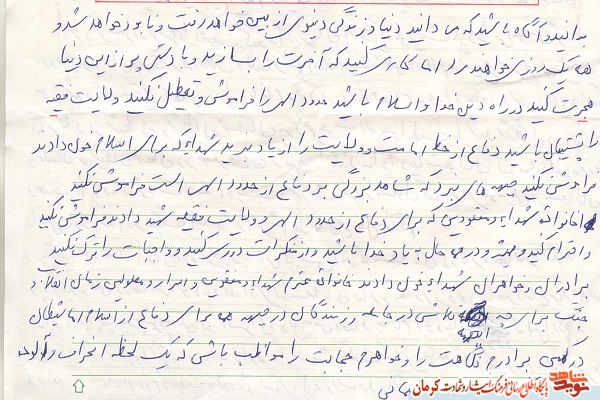 بدانید و آگاه باشید که می دانید دنیا و زندگی دنیوی از بین خواهد رفت و نابود خواهد شد و
همه یک روزی خواهند مرد اما کاری کنید که آخرت را بسازید و با دستی پر از این دنیا
هجرت کنید در راه دین خدا و اسلام باشید حدود الهی را فراموش و تعطیل نکنید ولایت فقیه
را پشتیبان باشید دفاع از خط امامت و ولایت را از یاد نبرید شهداء که برای اسلام خون دادند
فراموش نکنید جبهه های نبرد که شاهد بزرگی بر دفاع از حدود الهی است فراموش نکنید
خانواده شهداء و مفقودین که برای دفاع از حدود الهی و ولایت فقیه شهید دادند فراموش نکنید
و احترام کنید و همیشه و در همه حال به یاد خدا باشید و از منکرات دوری کنید و واجبات را ترک نکنید
برادران و خواهران شهداء خون دادند خانواده محترم شهداء و مفقودین و اسرا و معلولین زمان انقلاب و
جنگ برای چه در جامعه رزمندگان در جبهه ها برای دفاع از اسلام
برادرم نگاهت را و خواهرم حجابت را مواظب باش که یک لحظه انحراف
نوید شاهد
پایگاه اطلاع رسانی فرهنگ ایثار و شهادت کرمان